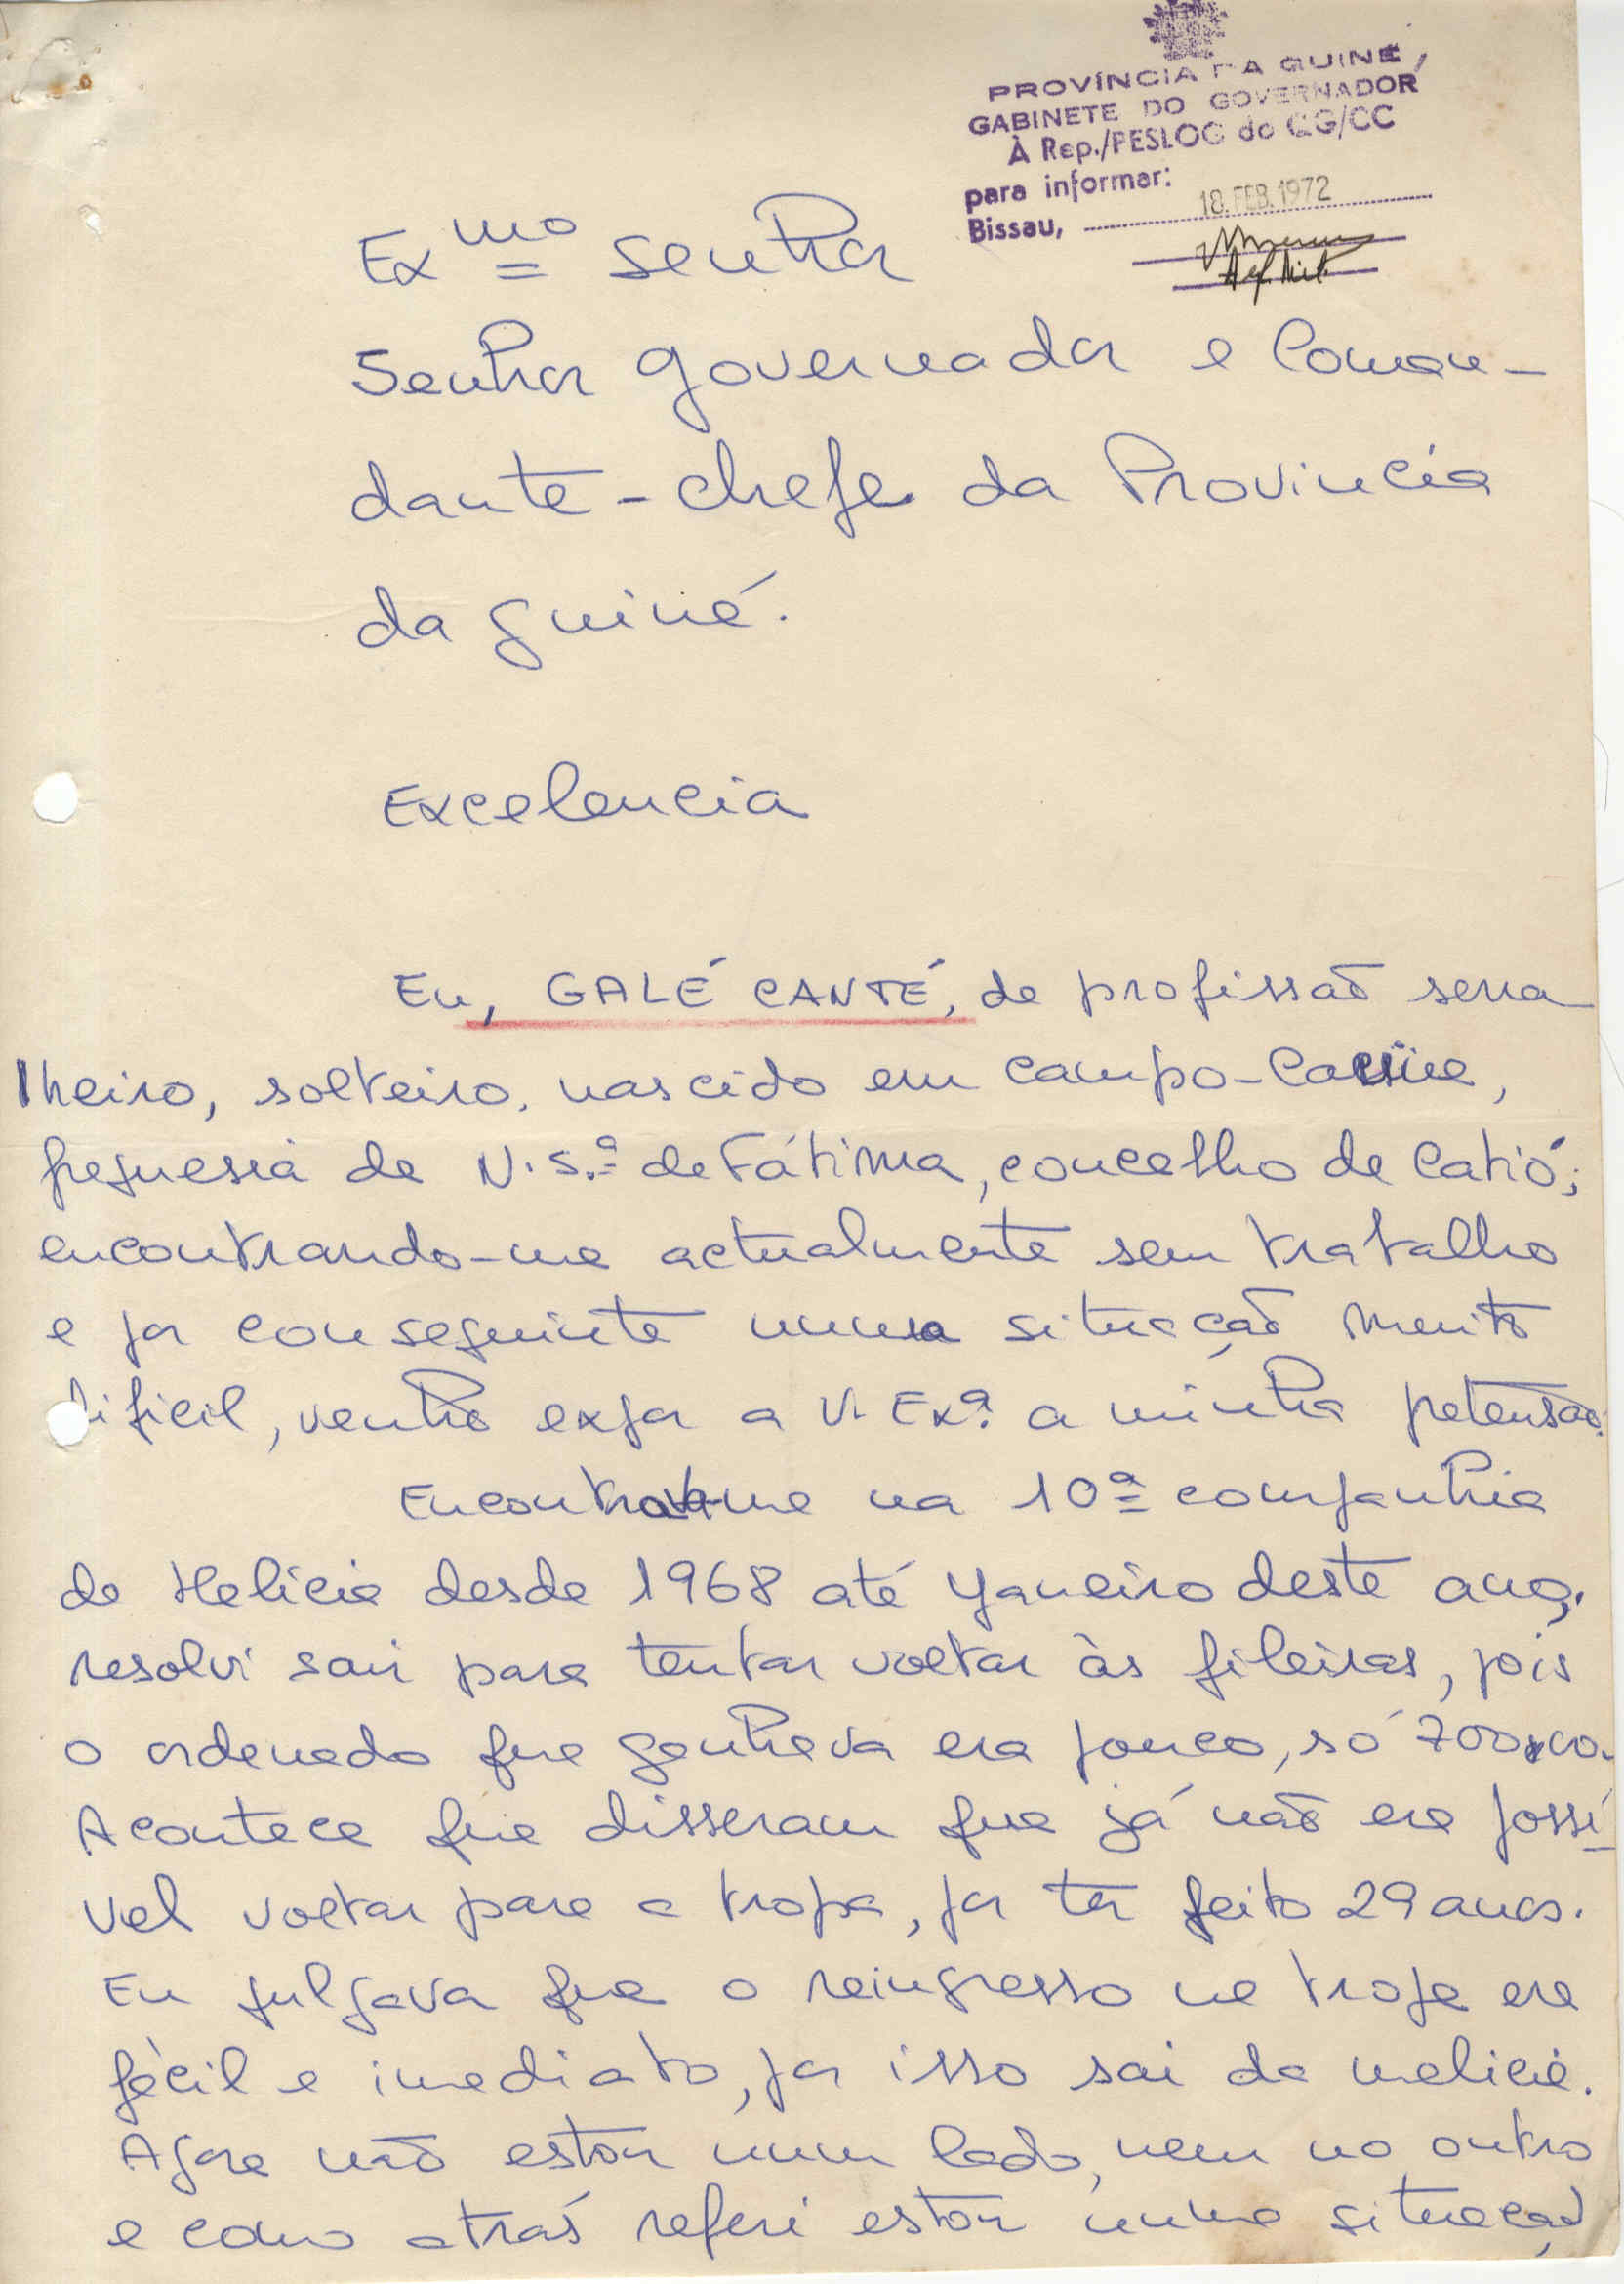 PROVÍNCIA DA GUINÉ
GABINETE DO GOVERNADOR
À Rep./PESLOG do QG/CC
para informar:
Bissau, 18. FEB. 1972
Exmo Senhor
Senhor Governador e Coman-
dante-chefe da Provincia
da Guiné.
Excelencia
Eu, GALÉ CANTÉ, de profissão serra
lheiro, solteiro, nascido em campo-
freguesia de N. S.ª de Fátima, concelho de Catió;
encontrando-me actualmente sem trabalho
e por conseguinte numa situação muito
dificil, venho expor a V. Exª. a minha petensão:
Encontrava-me na 10ª companhia
de Melicia desde 1968 até Janeiro deste ano,
resolvi sair para tentar voltar às fileiras, pois
o ordenado que ganhava era pouco, só 700$00.
Acontece que disseram que já não era possí
vel voltar para a tropa, por ter feito 29 anos.
Eu julgava que o reingresso na tropa era
fácil e imediato, por isso sai da melicia.
Agora não estou num lado, nem no outro
e como atrás referi estou numa situação